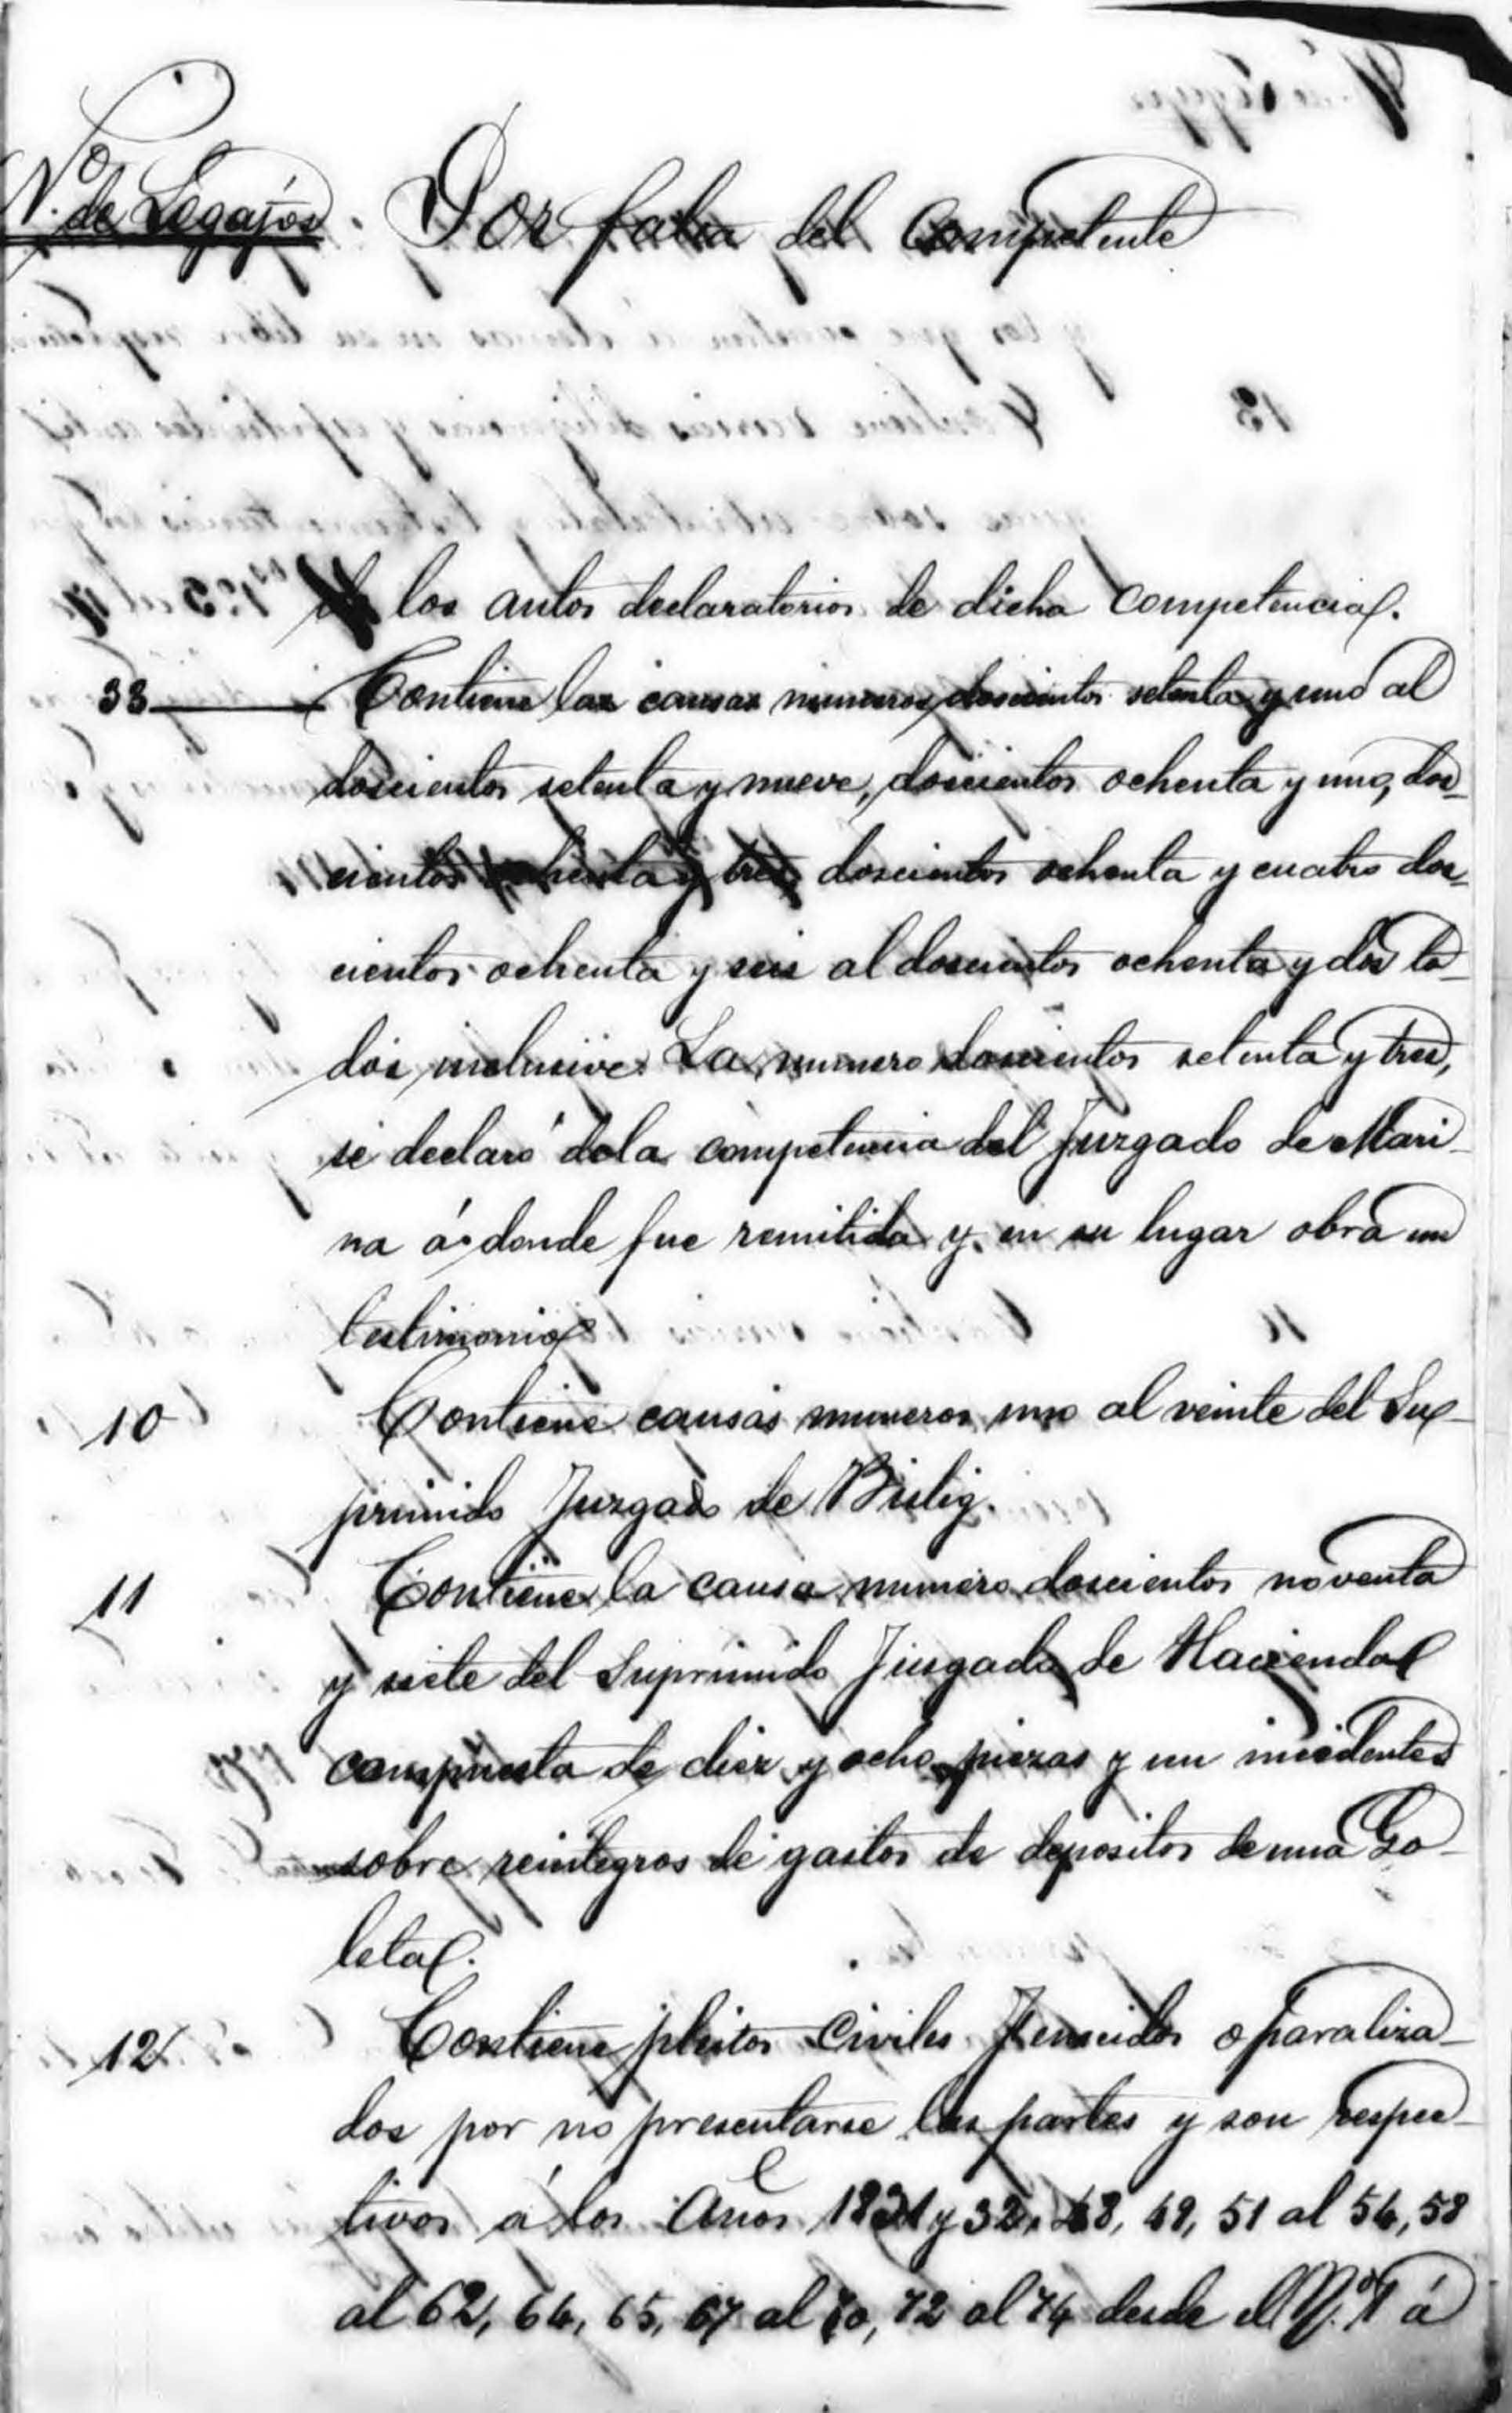 Nº de Legajos. Por falta del Competente
de los autos declaratorios de dicha competencia.
33 — Contiene las causas numeros doscientos setenta y uno al
doscientos setenta y nueve, doscientos ochenta y uno, dos-
cientos ochenta y tres, doscientos ochenta y cuatro dos-
cientos ochenta y seis al doscientos ochenta y dos to-
dos inclusive. La numero doscientos setenta y tres,
se declaró dela competencia del Juzgado de Mari-
na á donde fue remitida y en su lugar obra un
testimonio
10 Contiene causas numeros uno al veinte del Su-
primido Juzgado de Bislig.
11 Contiene la causa numero doscientos noventa
y siete del Suprimido Juzgado de Hacienda
compuesta de diez y ocho piezas y un incidentes
sobre reintegros de gastos de depositos de una Go-
leta.
12 Contiene pleitos Civiles Fenecidos o paraliza-
dos por no presentarse las partes y son respec-
tivos á los Años 1831 y 32, 48, 49, 51 al 54, 58
al 62, 64, 65, 67 al 70, 72 al 74 desde el Nº 1 á